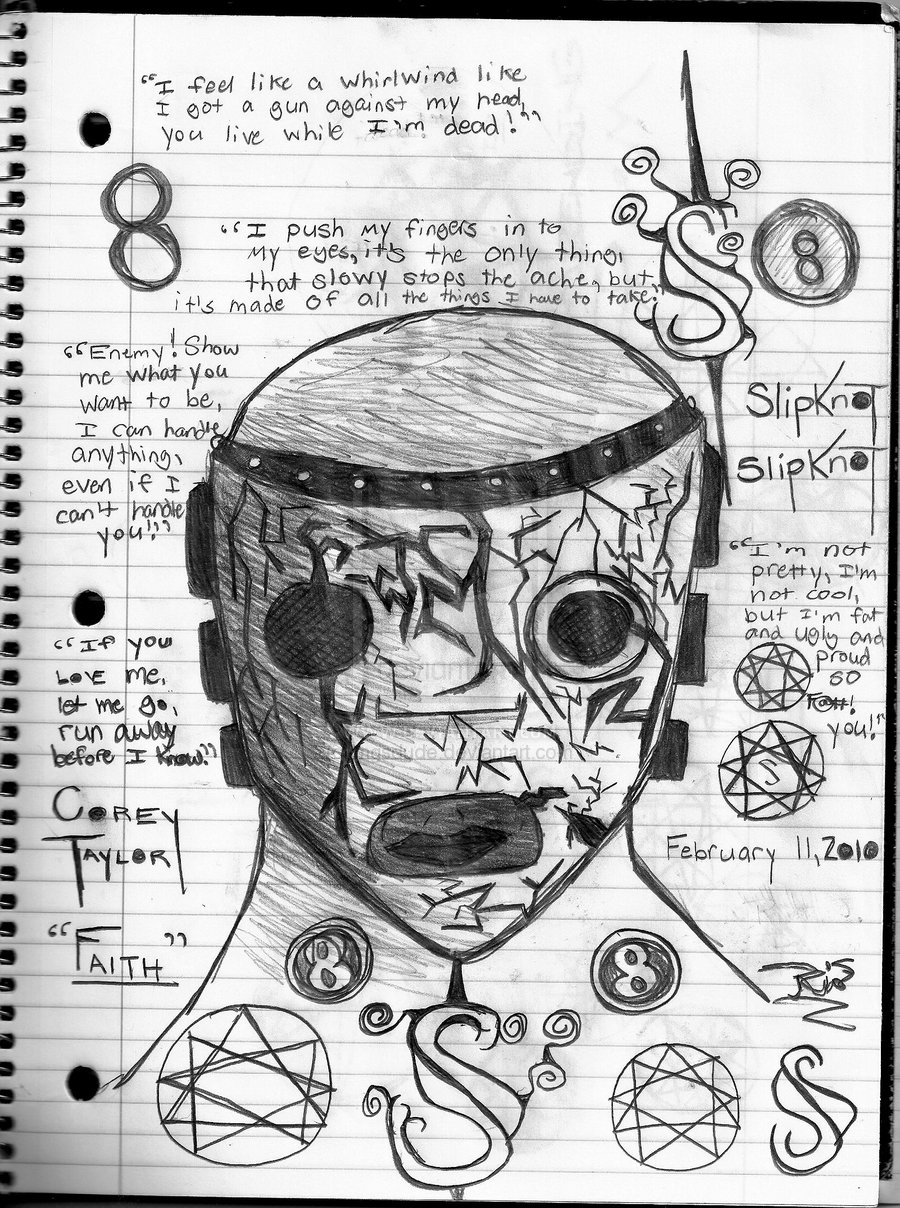 “I feel like a whirlwind like
I got a gun against my head,
you live while I'm dead!”
8
“I push my fingers in to
my eyes, it's the only thing,
that slowy stops the ache, but,
it's made of all the things I have to take.”
S
8
“Enemy! Show
me what you
want to be,
I can handle
anything,
even if I
can't handle
you!!”
SlipKnoT
SlipKnoT
“I'm not
pretty, I'm
not cool,
but I'm fat
and ugly and
proud
so
F@#!
you!”
“If you
Love me,
let me go,
run away
before I know.”
S
Corey
Taylor
February 11, 2010
“Faith”
8
8
S
S